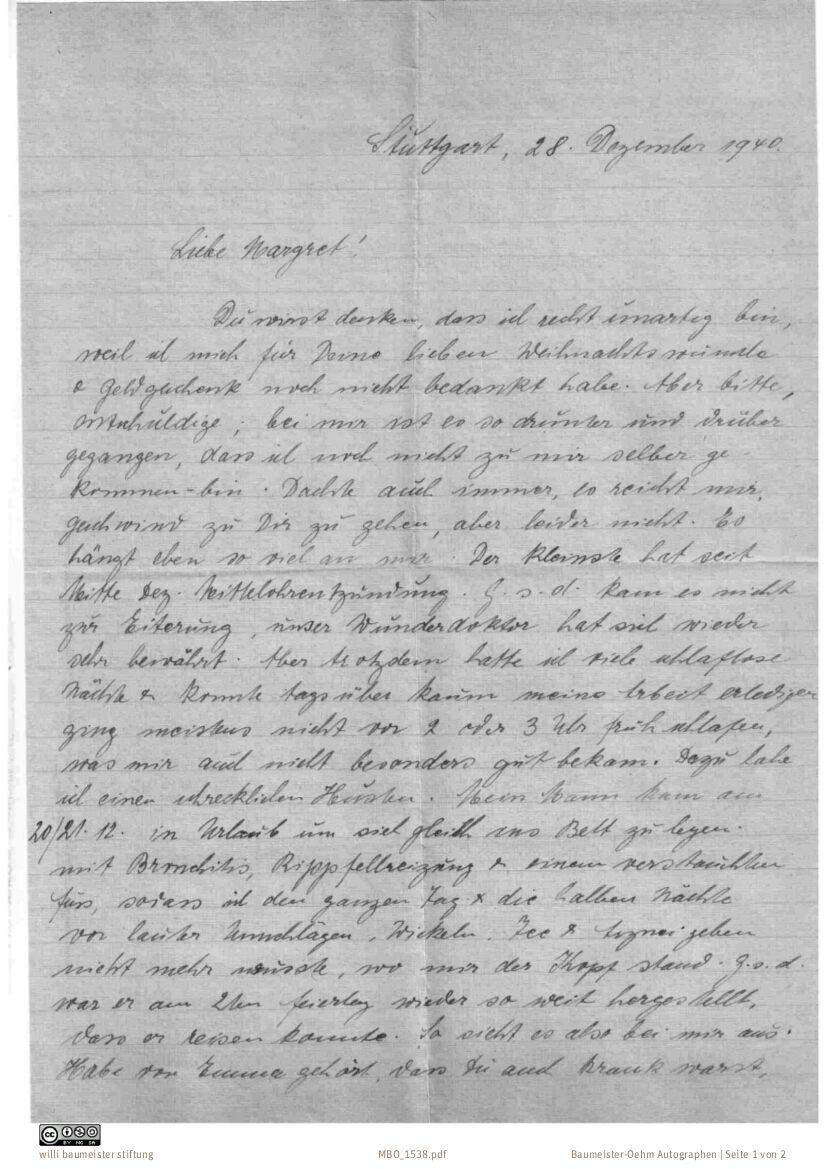 Stuttgart, 28. Dezember 1940.
Liebe Margret!
Du wirst denken, dass ich recht unartig bin,
weil ich mich für Deine lieben Weihnachtswünsche
& Geldgeschenk noch nicht bedankt habe. Aber bitte,
entschuldige; bei mir ist es so drunter und drüber
gegangen, dass ich noch nicht zu mir selber ge-
kommen bin. Dachte auch immer, es reicht mir,
geschwind zu Dir zu gehen, aber leider nicht. Es
hängt eben so viel an mir. Der Kleinste hat seit
Mitte Dez. Mittelohrentzündung. G.s.d. kam es nicht
zur Eiterung, unser Wunderdoktor hat sich wieder
sehr bewährt. Aber trotzdem hatte ich viele schlaflose
Nächte & konnte tagsüber kaum meine Arbeit erledigen
ging meistens nicht vor 2 oder 3 Uhr früh schlafen,
was mir auch nicht besonders gut bekam. Dazu habe
ich einen schrecklichen Husten. Mein Mann kam am
20/21. 12. in Urlaub um sich gleich ins Bett zu legen.
mit Bronchitis, Rippfellreizung & einem verstauchten
Fuss, sodass ich den ganzen Tag & die halben Nächte
vor lauter Umschlägen, Wickeln, Tee & Arznei geben
nicht mehr wusste, wo mir der Kopf stand. G.s.d.
war er am 2ten Feiertag wieder so weit hergestellt,
dass er reisen konnte. So sieht es also bei mir aus.
Habe von Emma gehört, dass Du auch krank warst,
willi baumeister stiftung
MBO_1538.pdf
Baumeister-Oehm Autographen | Seite 1 von 2